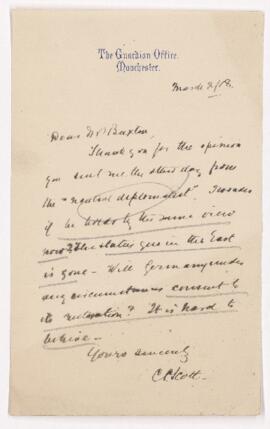 The Guardian Office,
Manchester.
March 2/18.
Dear Mr Buxton,
Thank you for the opinion
you sent me the other day from
the "neutral diplomatist". I wonder
if he holds by the same view
now? The status quo in the East
is gone - Will Germany under
any circumstances consent to
its restoration? It is hard to
believe.
Yours sincerely
C.P. Scott.